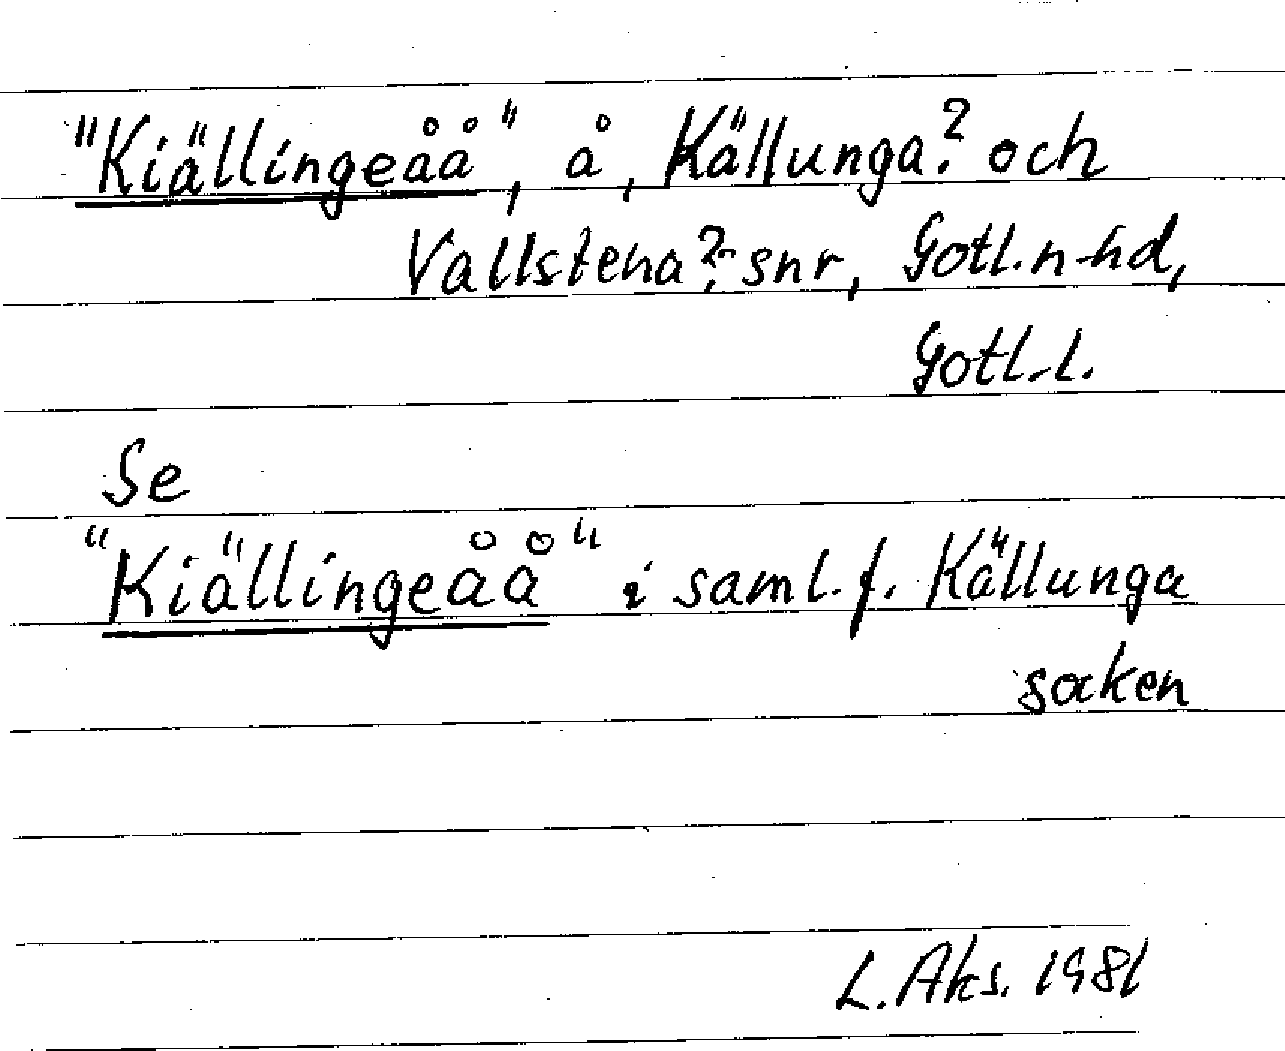 "Kiällingeåå", å, Källunga? och
Vallstena?-snr, Gotl. n-hd,
Gotl.-l.
Se
"Kiällingeåå" i saml. f. Källunga
socken
L. Aks. 1981